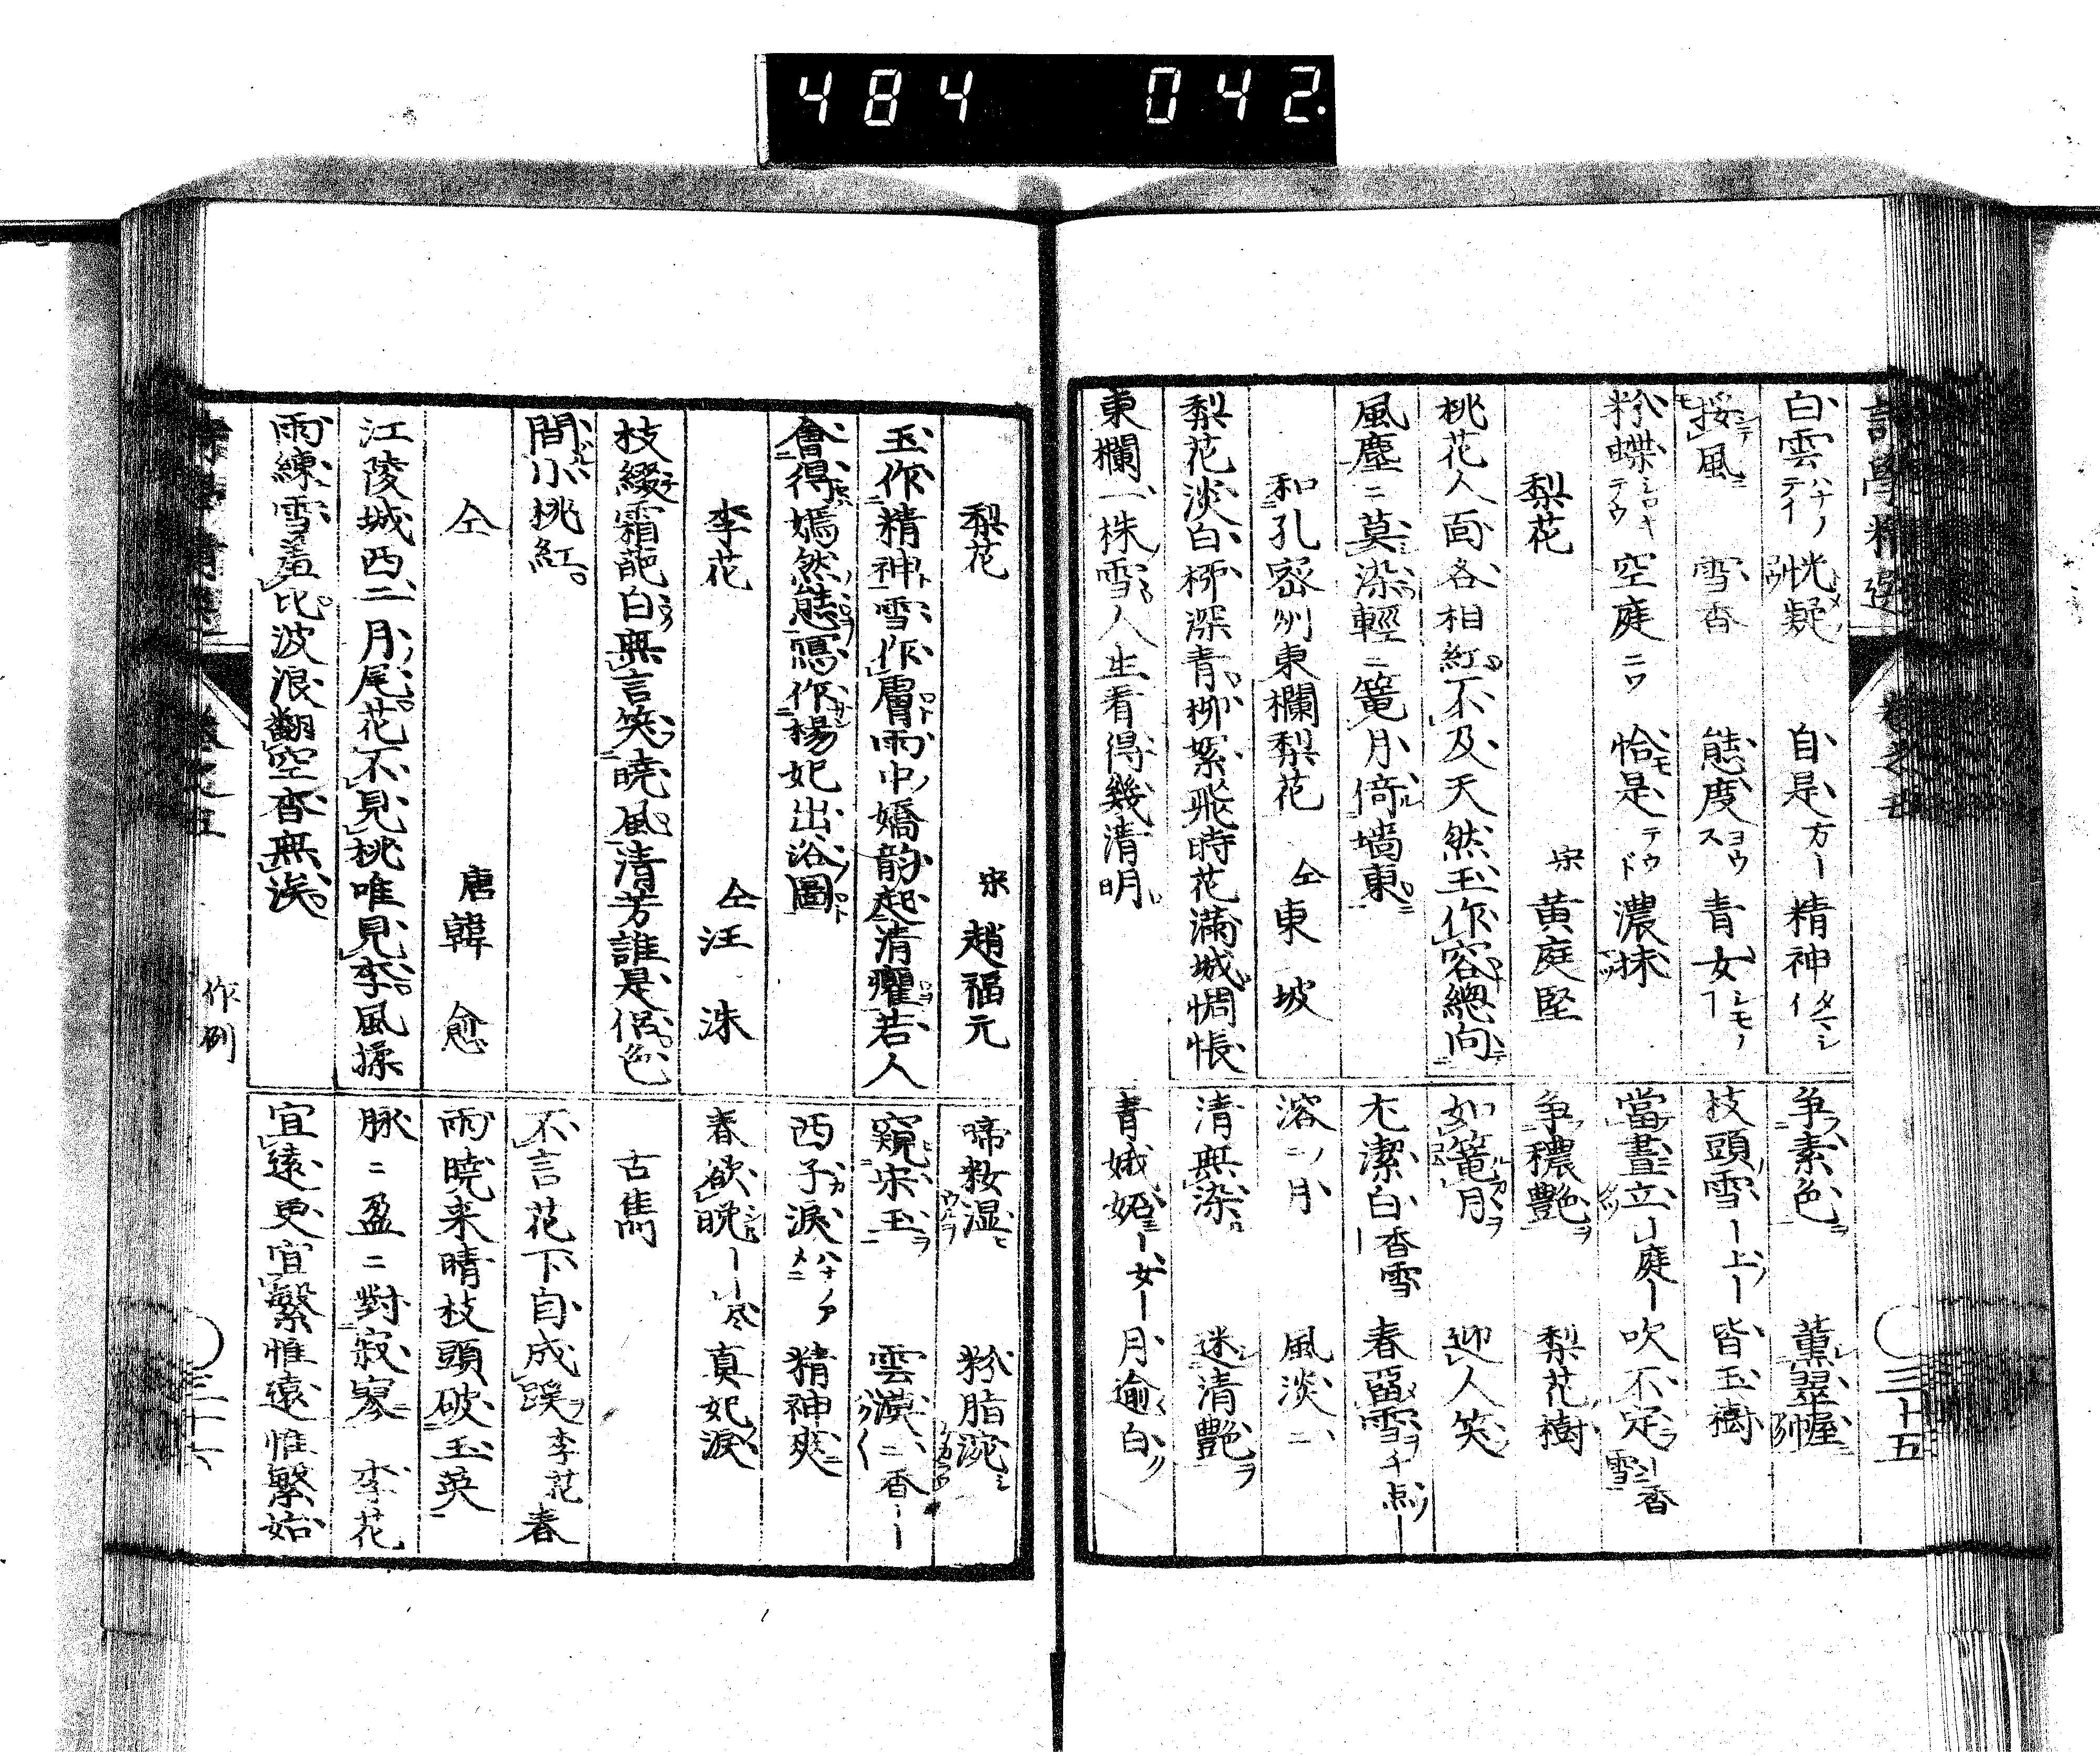 484 042
詩學精選 卷之五 三十五
白雲 恍疑 自是 精神
挼風 雪香 態度 青女
粉蝶 空庭 恰是 濃抹
梨花 宋 黄庭堅
桃花人面各相紅不及天然玉作容總向
風塵ニ莫染輕ニ篭月倚墻東
和孔密州東欄梨花 仝 東坡
梨花淡白桺深青桺絮飛時花滿城惆悵
東欄一株雪人生看得幾清明
争素色 薫翠幄
枝頭雪 皆玉樹
當晝立 吹不定
争穠艶 梨花樹
如篭月 迎人笑
尤潔白 香雪 春畱雪
溶ニ月 風淡ニ
清無染 迷清艶
青娥妬 月逾白
梨花 宋 趙福元
玉作精神雪作膚雨中嬌韵起清癯若人
會得嫣然態寫作楊妃出浴圖
李花 仝 汪洙
枝綴霜葩白無言笑曉風清芳誰是侶色
間小桃紅
仝 唐 韓愈
江陵城西二月尾花不見桃唯見李風揉
雨練雪羞比波浪翻空杳無涘
作例
啼粧湿 粉脂涴
窺宋玉 雲漠ニ
西子淚 精神爽
春欲晩 真妃淚
古雋
不言花下自成蹊 李花春
雨曉来晴枝頭破玉英
脉ニ盈ニ對寂寥 李花
宜遠更宜繁惟遠惟繁始
三十六